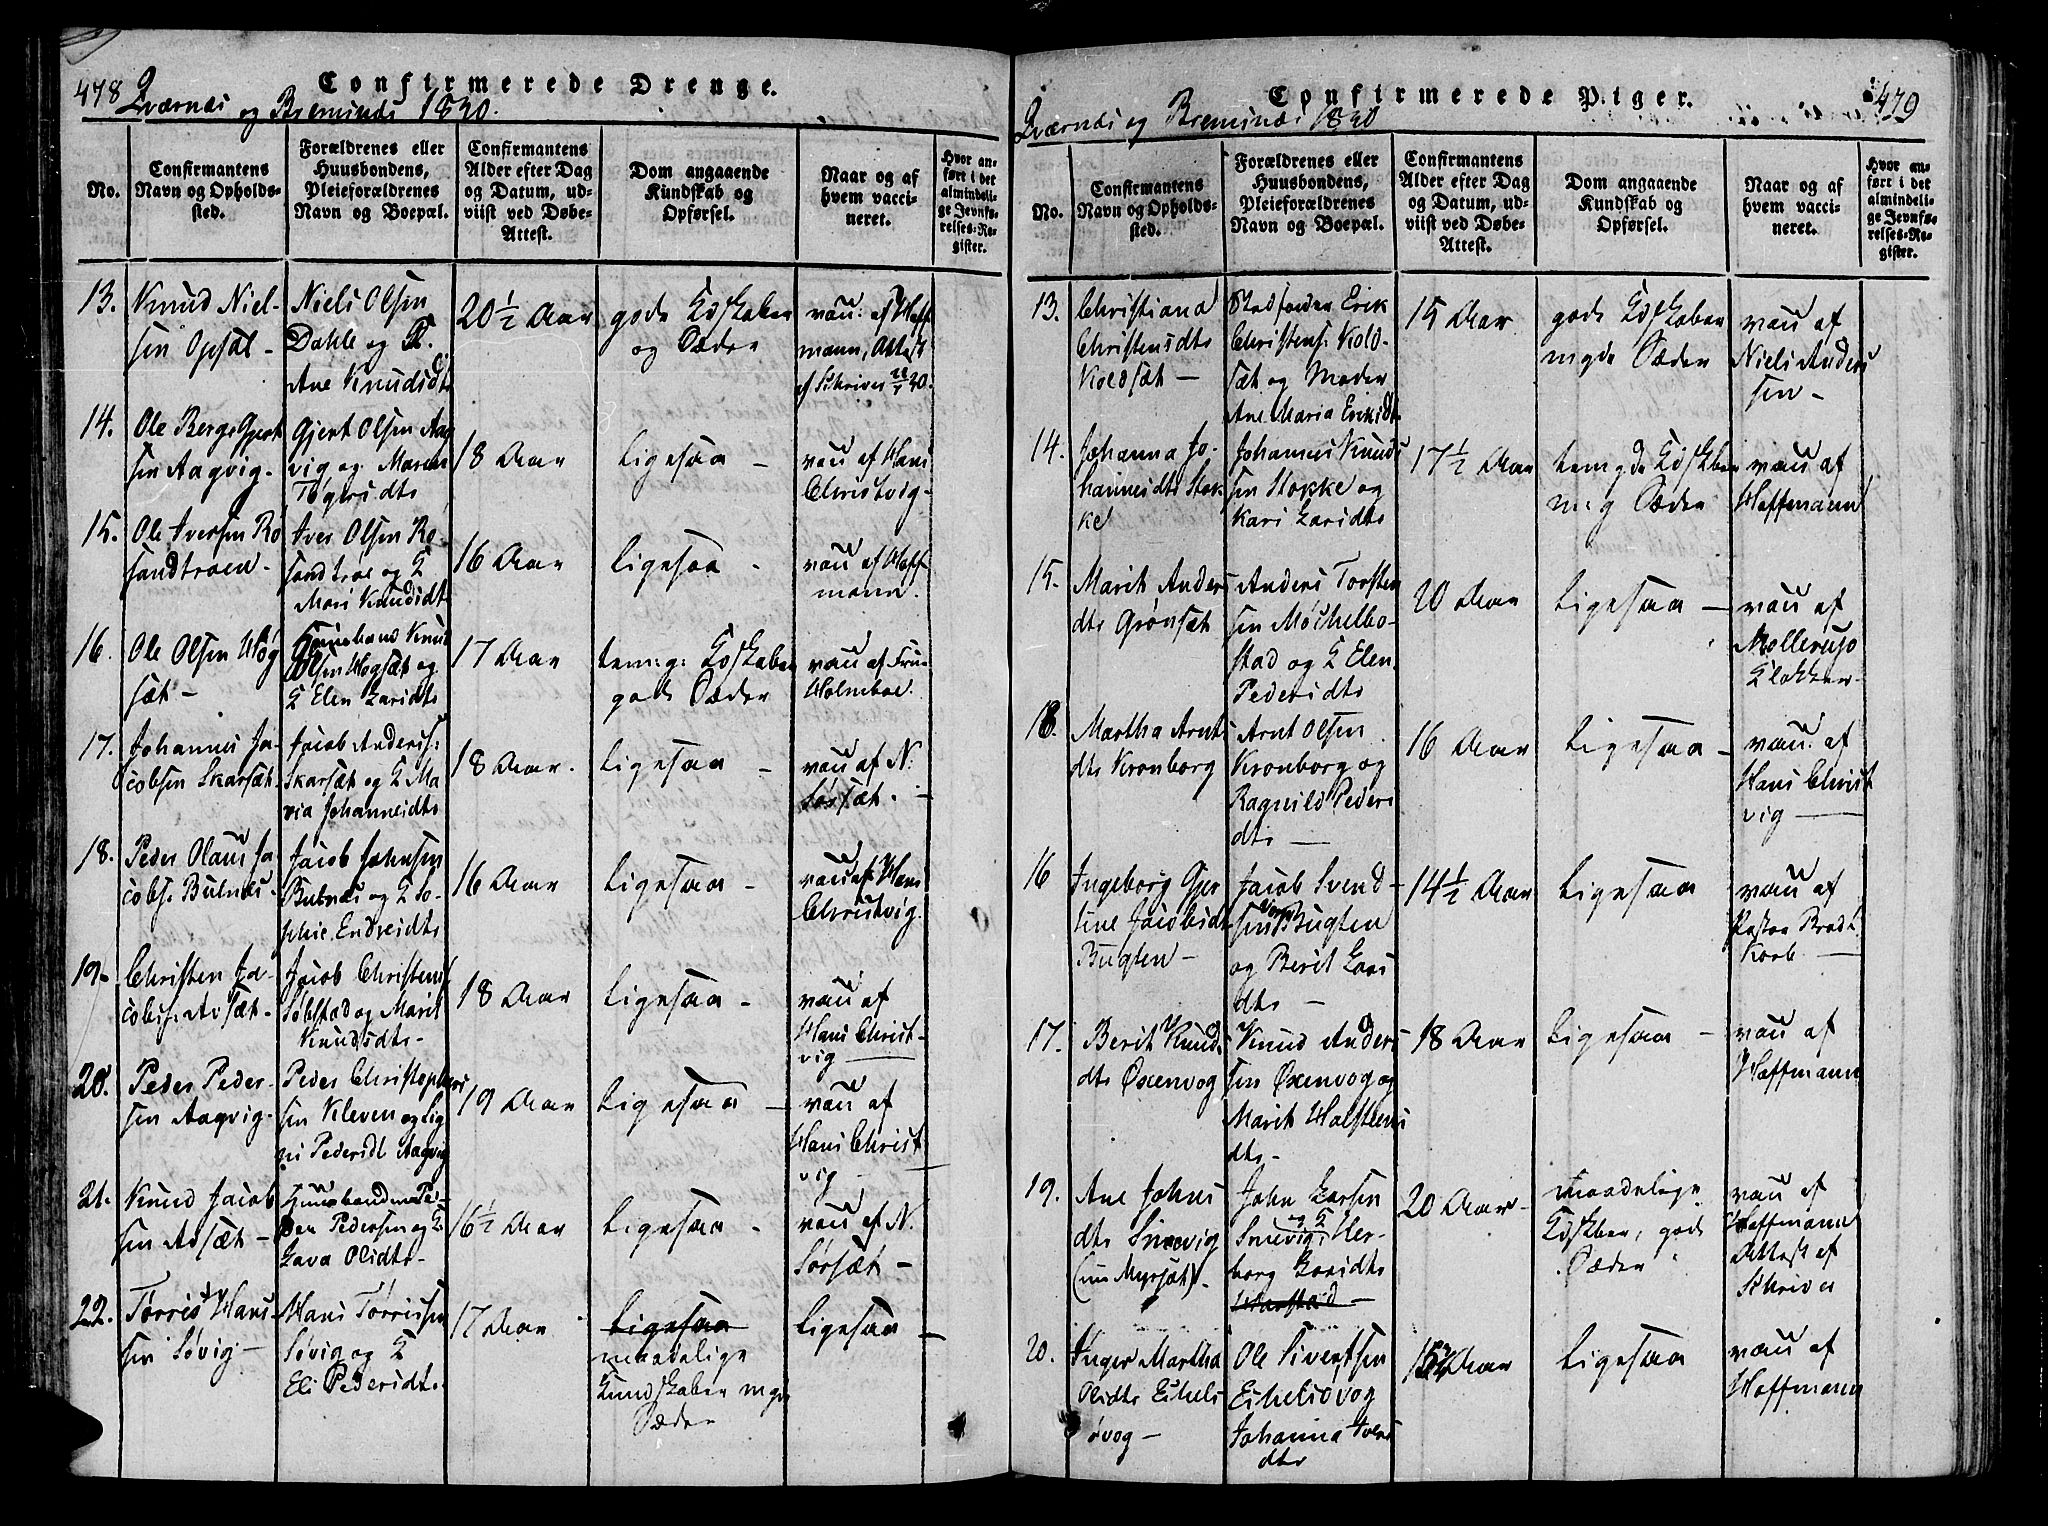 478
Confirmerede Drenge.
Qværnes og Bremsnes 1820.
No.
Confirmantens Navn og Opholds-sted.
Forældrenes eller Huusbondens, Pleieforældrenes Navn og Boepæl.
Confirmantens Alder efter Dag og Datum, ud-viist ved Døbe-Attest.
Dom angaaende Kundskab og Opførsel.
Naar og af hvem vacci-neret.
Hvor an-ført i det almindeli-ge Jevnfø-relses-Re-gister.
13.
Knud Niel-
sen Opsal -
Niels Olsen
Dahle og
Ane Knudsdt
20½ Aar
gode Kdskaber
og Sæder
vacc: af Hoff
mann, Attest
af Schriver
14.
Ole Berg Gjert
sen Aagvig -
Gjert Olsen Aag
vig og Maren
18 Aar
ligesaa -
vacc af Hans
Christvig -
15.
Ole Iversen Ro
sandtroen -
Iver Olsen Ro-
sandtroe og K
Mari Knudsdt
16 Aar
ligesaa -
vacc af Hoff
mann.
16.
Ole Olsen Høg
sæt -
Knud
Olsen Høgsæt og
K Elen Larsdtr
17 Aar
tem: g: Kdskaber
gode Sæder
vacc af Fru
Holmboe.
17.
Johannes Ja-
cobsen Skarsæt -
Jacob Anders:
Skarsæt og K Ma
ria Johannesdtr
18 Aar.
ligesaa -
vacc af N:
Sørsæt. -
18.
Peder Olaus Ja
cobs: Bulnes -
Jacob Johnsen
Bulnes og K So-
phie Endresdtr
16 Aar
ligesaa -
vacc af Hans
Christvig.
19 -
Christen Ja-
cobs: Avsæt -
Jacob Christens:
Søbstad og Marit
Knudsdtr -
18 Aar
ligesaa -
vacc af
Hans Christ-
vig -
20.
Peder Peder-
sen Aagvig -
Peder Christophers
sen Kleven og Sig
ni Pedersdt Aagvig
19 Aar
ligesaa -
vacc af
Hans Christ
vig -
21.
Knud Jacob
sen Avsæt -
Huusbonden Pe-
der Pedersen og K
Olsdtr -
16½ Aar
ligesaa -
vacc af N.
Sørsæt -
22.
Torris Hans
sen Søvig -
Hans Torrissen
Søvig og K
Eli Pedersdt.
17 Aar
ligesaa
maadelige
Kundskaber m: g:
Sæder
ligesaa -
479
Confirmerede Piger.
Qværnes og Bremsnes 1820
No.
Confirmantens Navn og Opholds-sted.
Forældrenes eller Huusbondens, Pleieforældrenes Navn og Boepæl.
Confirmantens Alder efter Dag og Datum, ud-viist ved Døbe-Attest.
Dom angaaende Kundskab og Opførsel.
Naar og af hvem vacci-neret.
Hvor an-ført i det almindeli-ge Jevnfø-relses-Re-gister.
13.
Christiana
Christensdtr
Koldsæt -
Stedfader Erik
Christens: Kold-
sæt og Moder
Ane Maria Eriksdt
15 Aar
gode Kdskaber
m gde Sæder
vacc af
Niels Anders
sen -
14.
Johanna Jo-
hannesdtr Stok
ke
Johannes Knuds
sen Stokke og
Kari Larsdtr
17½ Aar
tem gde Kdskber
m: g Sæder
vacc af
Hoffmann
15.
Marit Anders
dtr Grønsæt
Anders Torsten
sen Møchelbo-
stad og K Elen
Pedersdtr
20 Aar
ligesaa -
vacc af
Møllerup
Klokker -
18.
Martha Arnts
dtr Kronborg
Arnt Olsen
Kronborg og
Ragnild Peders
dtr -
16 Aar
ligesaa -
vacc. af
Hans Christ
vig -
16
Ingeborg Gjer
tine Jacobsdt
Bugten -
Jacob Svend-
sen Bugten
og Berit Lars
dtr -
14½ Aar
ligesaa
vacc af
Pastor Brodt
korb -
17.
Berit Knuds
dtr Øxenvog
Knud Anders
sen Øxenvog og
Marit Halsteens
dtr -
18 Aar
ligesaa -
vacc af
Hoffmann
19.
Ane Johns
dtr Snevig
(nu Myrsæt) -
John Larsen
og K
Snevig, Her-
borg Larsdtr
20 Aar -
maadelige
Kdskber, gode
Sæder
vacc af
Hoffmann
Attest af
Schriver
20.
Inger Martha
Olsdtr Eikels
øvog -
Ole Sivertsen
Eikelsøvog
Johanna Ivers
dtr
Aar
ligesaa
vacc af
Hoffmann